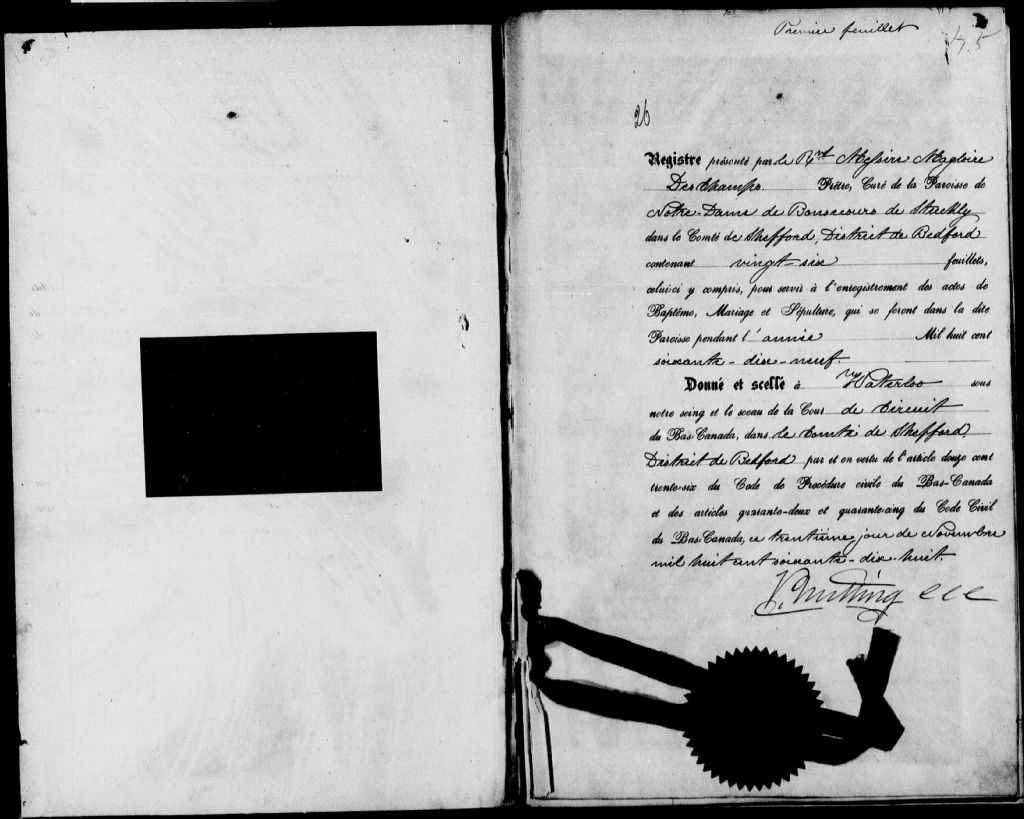 Premier feuillet
26
Registre présenté par le Rvd Messire Magloire
DesChamps. Prêtre, Curé de la Paroisse de
Notre-Dame de Bonsecours de Stuckly
dans le Comté de Shefford, District de Bedford
contenant vingt-six feuillets,
celui-ci y compris, pour servir à l'enregistrement des actes de
Baptême, Mariage et Sépulture, qui se feront dans la dite
Paroisse pendant l'année Mil huit cent
soixante-dix-neuf.
Donné et scellé à Waterloo sous
notre seing et le sceau de la Cour de Circuit
du Bas-Canada, dans le Comté de Shefford,
District de Bedford par et en vertu de l'article douze cent
trente-six du Code de Procédure civile du Bas-Canada
et des articles quarante-deux et quarante-cinq du Code Civil
du Bas-Canada, ce trentième jour de Novembre
mil huit cent soixante-dix-huit.